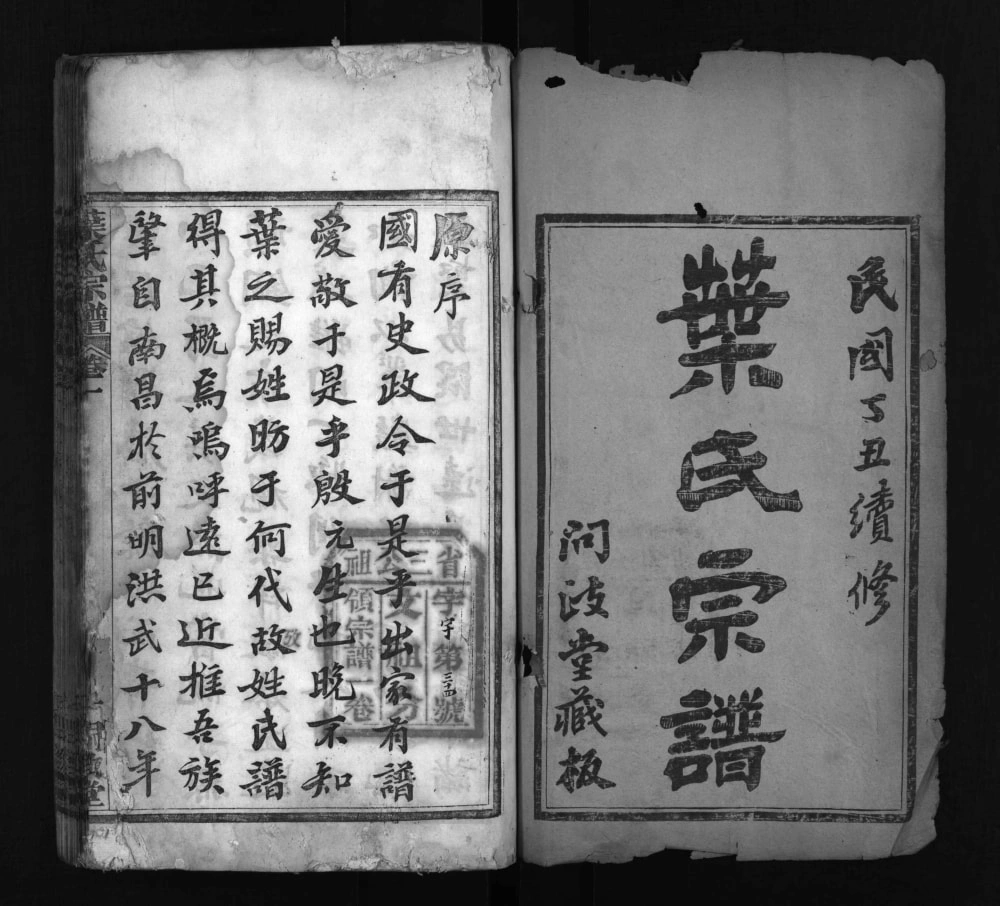 民國丁丑續修
葉氏宗譜
問政堂藏板
原序
國有史政令于是乎出家有譜
愛敬于是乎殷元生也晚不知
葉之賜姓昉于何代故姓氏譜
得其概焉嗚呼遠已近推吾族
肇自南昌於前明洪武十八年
葉氏宗譜 卷一
省字 字第 號
三公文祖
祖領宗譜一卷